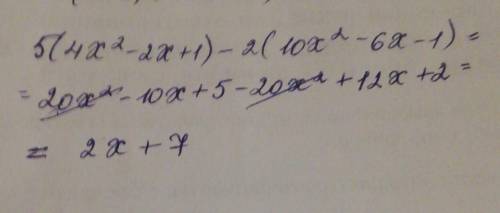 5(4x²-2x+1)-2(10x²-6x-1)=
=20x²-10x+5-20x²+12x+2=
= 2x+7